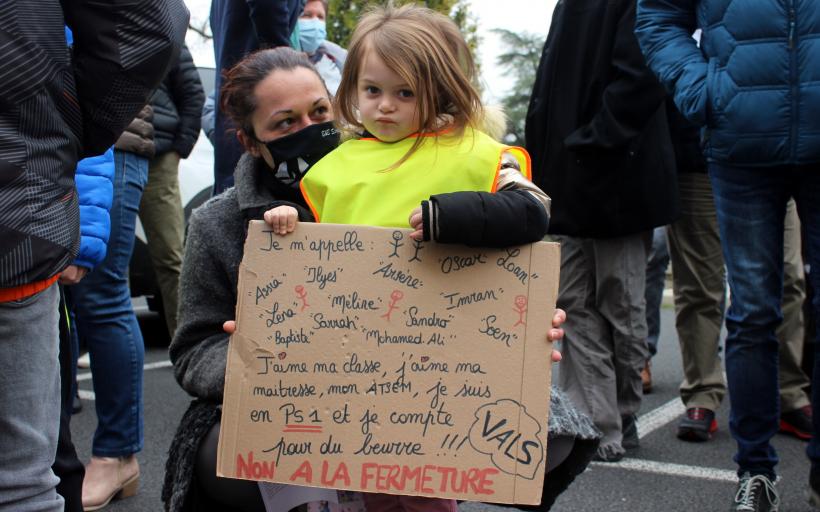 Je m'appelle :
"Oscar" "Loan"
"Assia" "Ilyes" Arsène"
"Lena" "Méline" Imran"
"Baptiste" "Sarrah" "Sandro" "Soen"
"Mohamed Ali"
J'aime ma classe, j'aime ma
maitresse, mon ATSEM, je suis
en PS1 et je compte
pour du beurre !!!
VALS
NON A LA FERMETURE